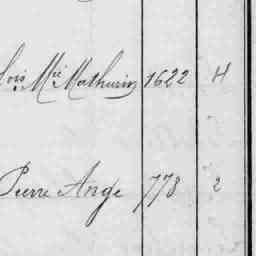 Mie Mathurin 1622 H
Pierre Ange 778 2